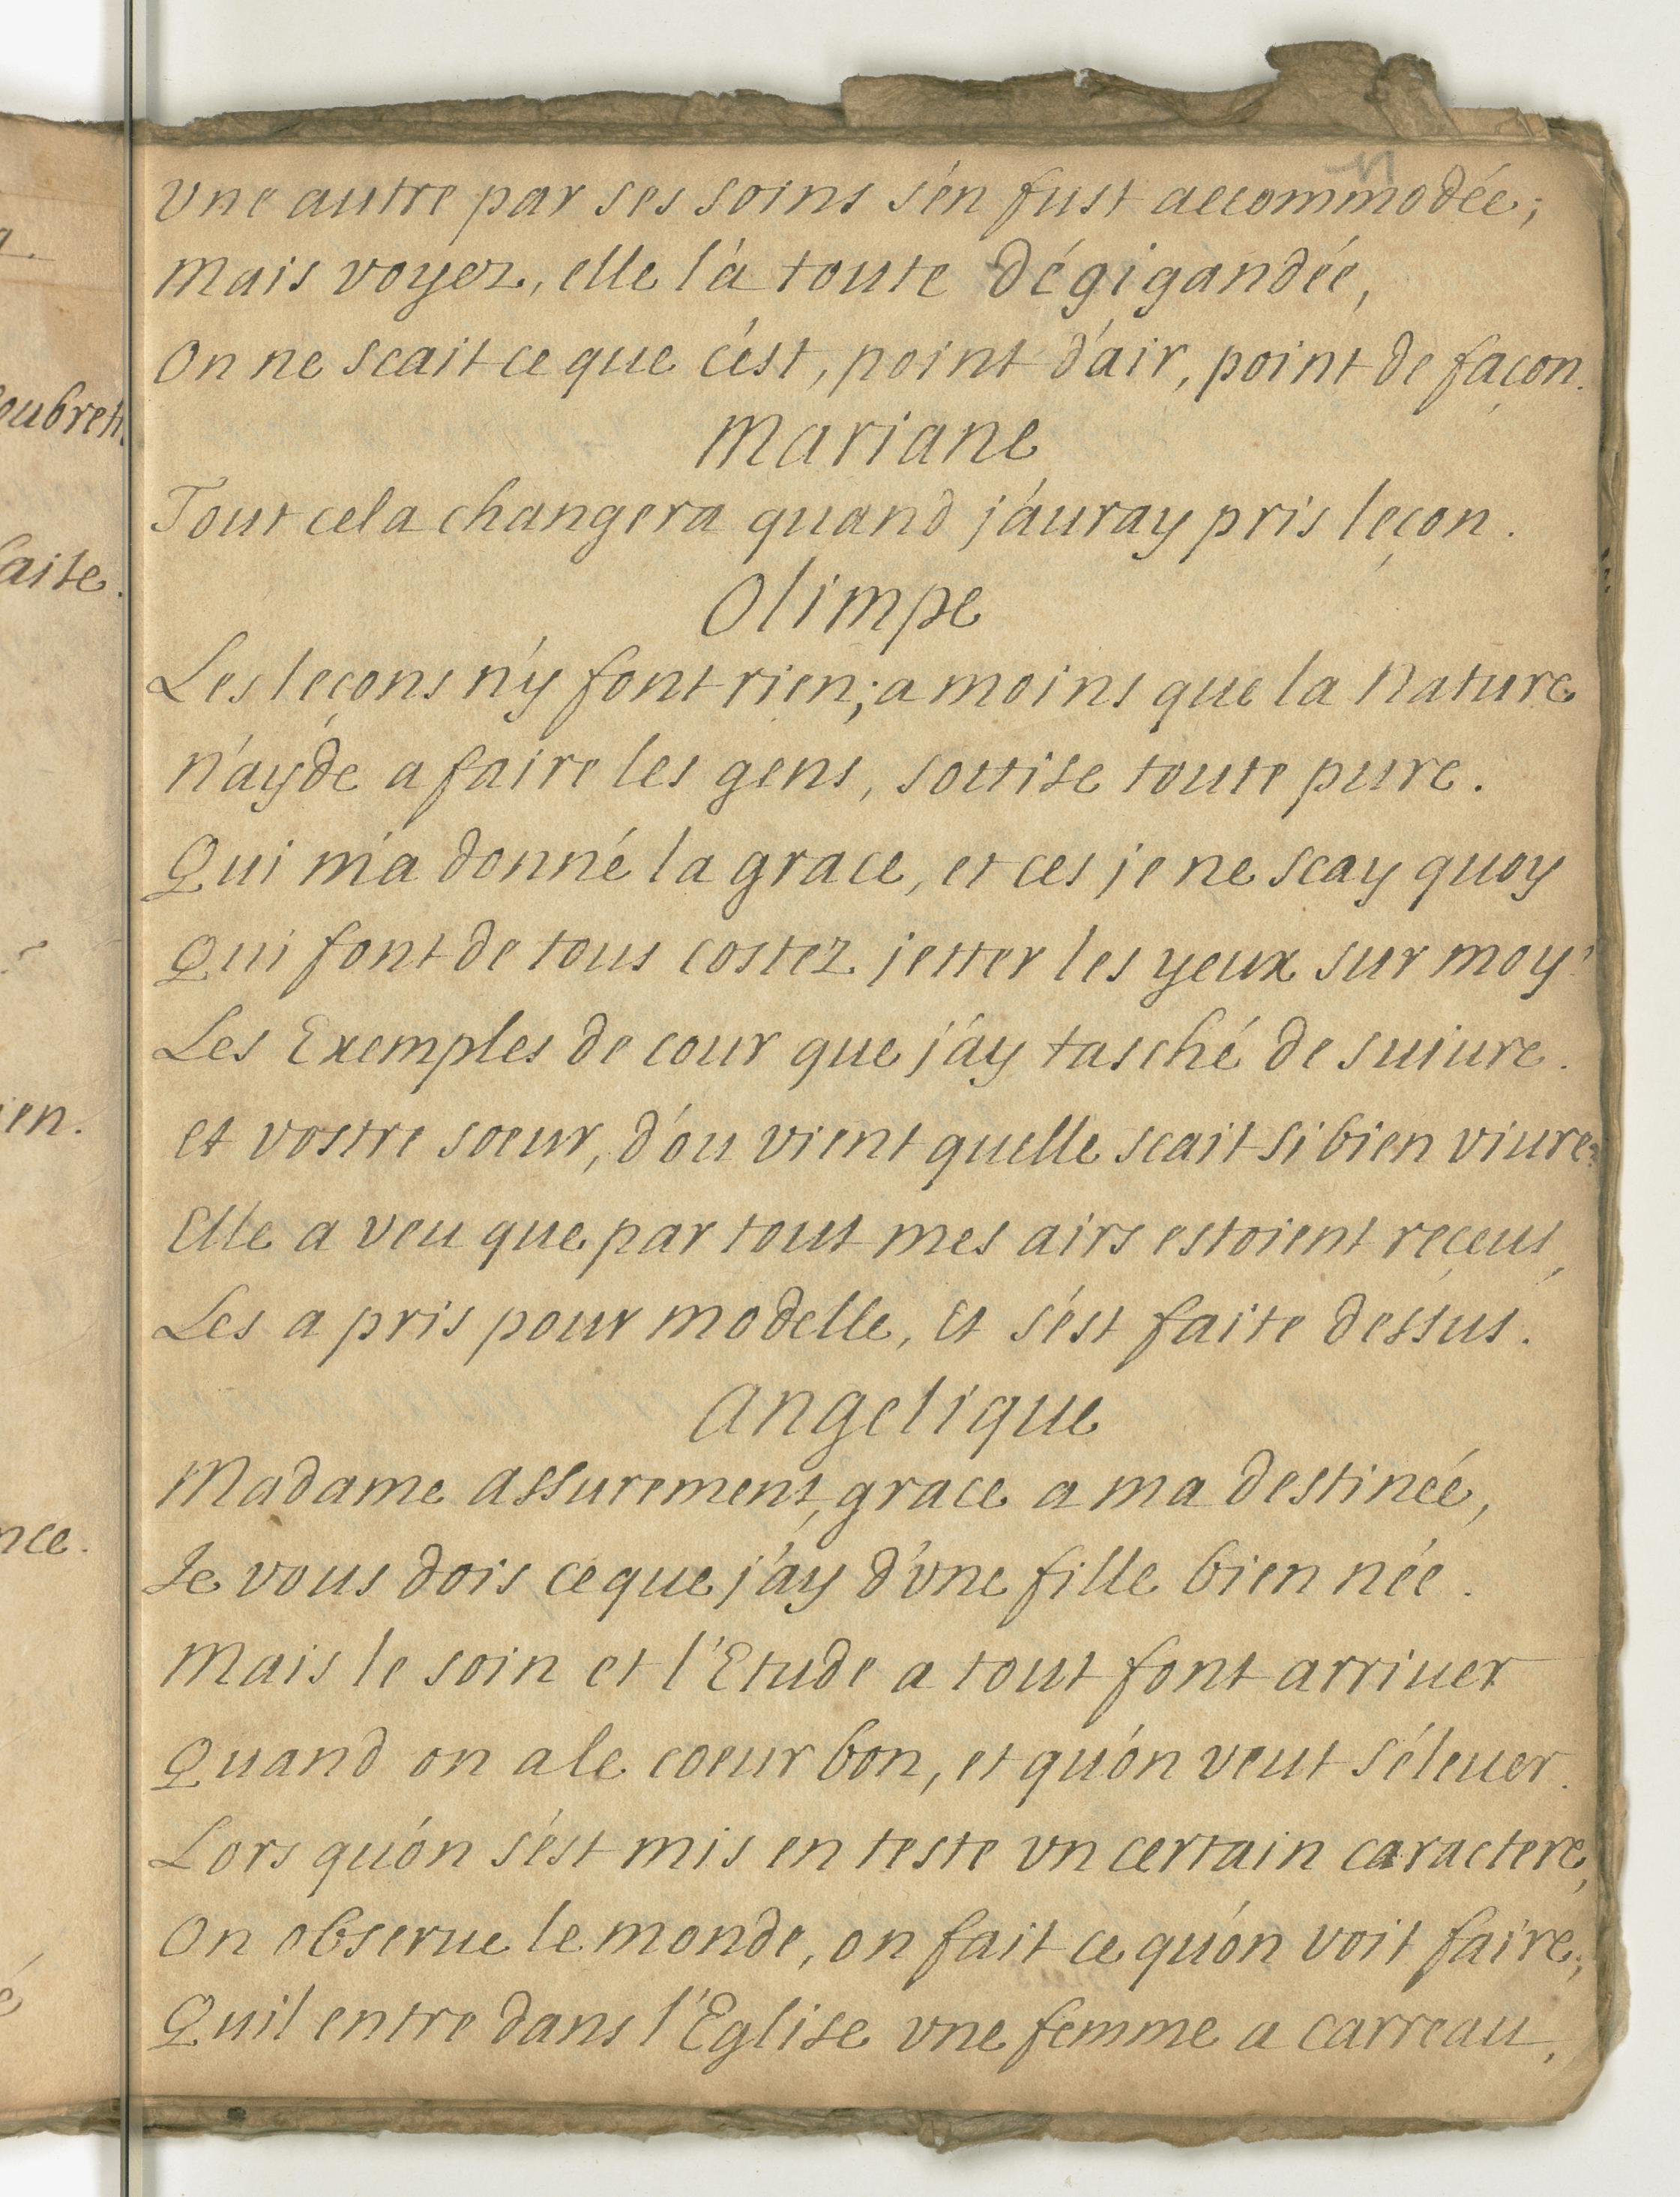 vne autre par ses soins s'en fust accommodée;
Mais voyez, elle l'a toute dégigandée,
On ne scait ce que c'est, point d'air, point de façon.
Mariane
Tout cela changera quand j'auray pris leçon.
Olimpe
Les leçons n'y font rien; a moins que la Nature
N'ayde a faire les gens, sottise toute pure.
Qui m'a donné la grace, et ces je ne scay quoy
Qui font de tous costez jetter les yeux sur moy?
Les Exemples de cour que j'ay tasché de suiure.
Et vostre soeur, d'ou vient quelle scait si bien viure?
Elle a veu que par tout mes airs estoient reçeus,
Les a pris pour modelle, et s'est faite dessus.
Angelique
Madame assurement, grace a ma destinée,
Je vous dois ce que j'ay d'vne fille bien née.
Mais le soin et l'Etude a tout font arriuer
Quand on a le coeur bon, et qu'on veut s'éleuer.
Lors qu'on s'est mis en teste vn certain caractere,
On obserue le monde, on fait ce qu'on voit faire;
Quil entre dans l'Eglise vne femme a carreau,
oubrett
faite.
ien.
nce.